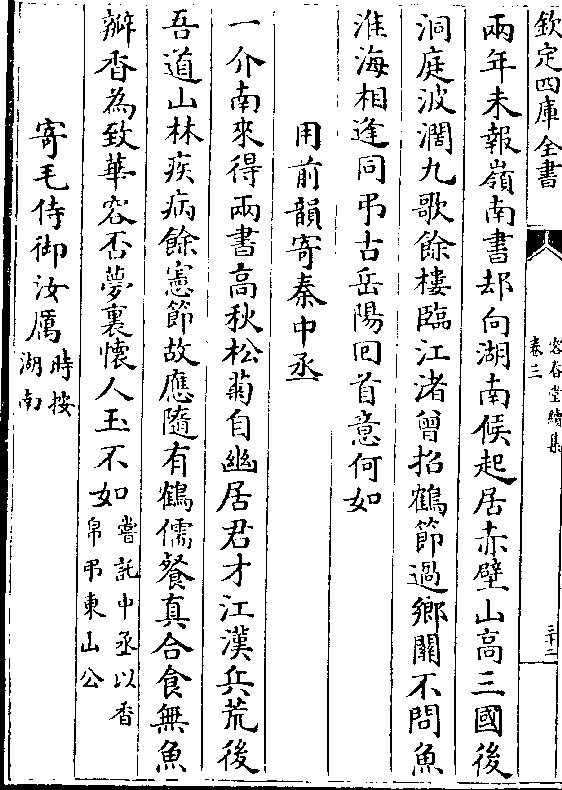 欽定四庫全書
容春堂續集
卷三
三十二
兩年未報嶺南書却向湖南候起居赤壁山高三國後
洞庭波濶九歌餘樓臨江渚曾招鶴節過鄉關不問魚
淮海相逢同弔古岳陽回首意何如
用前韻寄秦中丞
一介南來得兩書高秋松菊自幽居君才江漢兵荒後
吾道山林疾病餘憲節故應隨有鶴儒餐真合食無魚
瓣香為致華容否夢裏懷人玉不如嘗託中丞以香
帛弔東山公
寄毛侍御汝厲時按
湖南